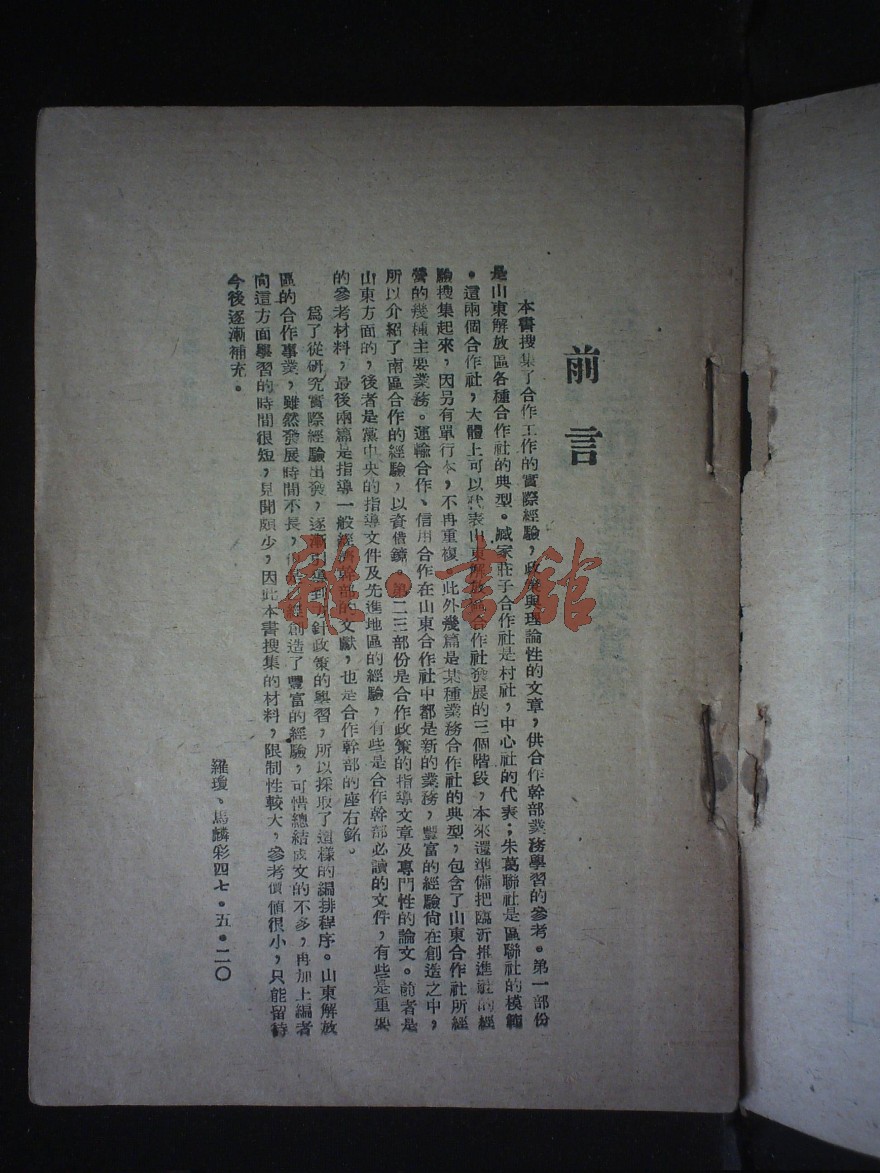 前言
本書搜集了合作工作的實際經驗，政策與理論性的文章，供合作幹部業務學習的參考。第一部份
是山東解放區各種合作社的典型。臧家莊子合作社是村社，中心社的代表；朱葛聯社是區聯社的模範
。這兩個合作社，大體上可以代表山東解放區合作社發展的三個階段，本來還準備把臨沂推進社的經
驗搜集起來，因另有單行本，不再重複。此外幾篇是某種業務合作社的典型，包含了山東合作社所經
營的幾種主要業務。運輸合作、信用合作在山東合作社中都是新的業務，豐富的經驗尙在創造之中，
所以介紹了南區合作的經驗，以資借鏡。第二三部份是合作政策的指導文章及專門性的論文。前者是
山東方面的，後者是黨中央的指導文件及先進地區的經驗，有些是合作幹部必讀的文件，有些是重要
的參考材料，最後兩篇是指導一般經濟幹部的文獻，也是合作幹部的座右銘。
爲了從研究實際經驗出發，逐漸引導到方針政策的學習，所以採取了這樣的編排程序。山東解放
區的合作事業，雖然發展時間不長，但是已經創造了豐富的經驗，可惜總結成文的不多，再加上編者
向這方面學習的時間很短，見聞頗少，因此本書搜集的材料，限制性較大，參考價值很小，只能留待
今後逐漸補充。
羅瓊、馬麟彩四七・五・二〇
雜・書館